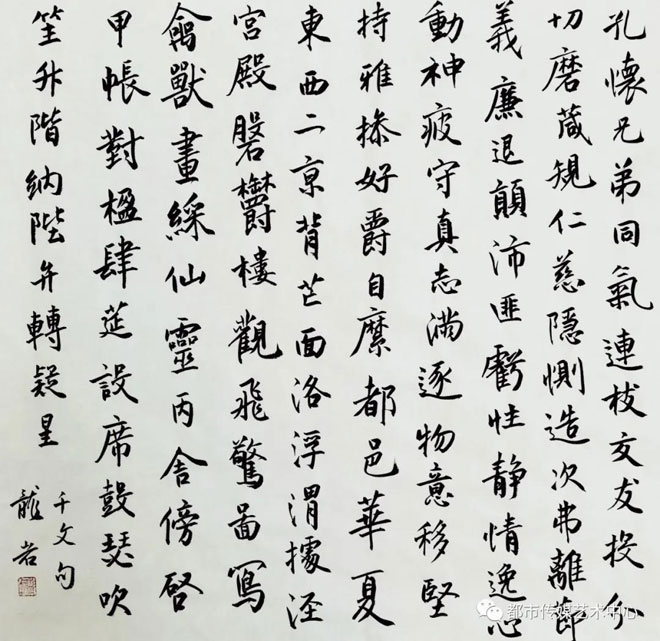 孔懷兄弟同氣連枝交友投分
切磨箴規仁慈隱惻造次弗離節
義廉退顛沛匪虧性靜情逸心
動神疲守真志滿逐物意移堅
持雅操好爵自縻都邑華夏
東西二京背芒面洛浮渭據涇
宮殿磐鬱樓觀飛驚啚寫
禽獸畫綵仙靈丙舍傍啓
甲帳對楹肆筵設席鼓瑟吹
笙升階納陛弁轉疑星
千文句
龍
都市传媒艺术中心